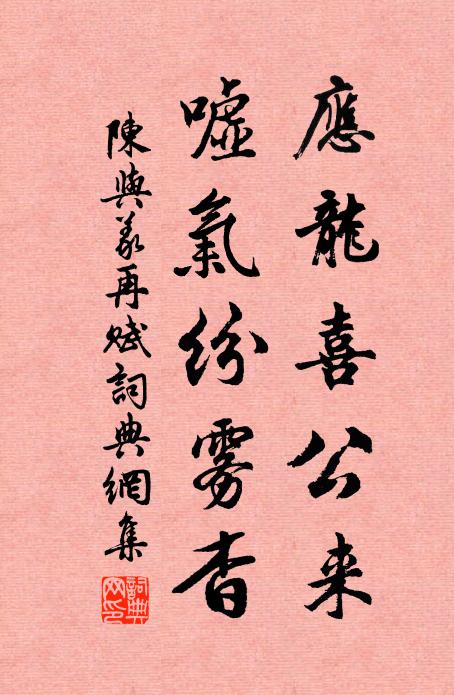 應龍喜公来
噓氣紛雾杳
陳與義再赋詞典網集
詞典网印